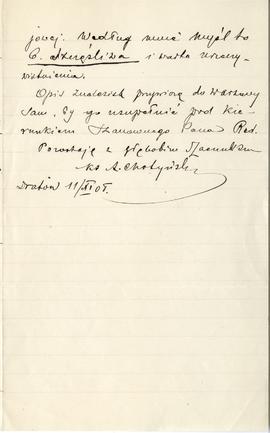 jowej. Według mnie myśl to
B. szczęśliwa i warta urzeczy-
wistnienia.
Opis znalezisk przywiozę do Warszawy
sam, by go uzupełnić pod kie-
runkiem Szanownego Pana Red.
Pozostaję z głębokim szacunkiem
Ks A. Chotyński
Dratów 11/XI 05.